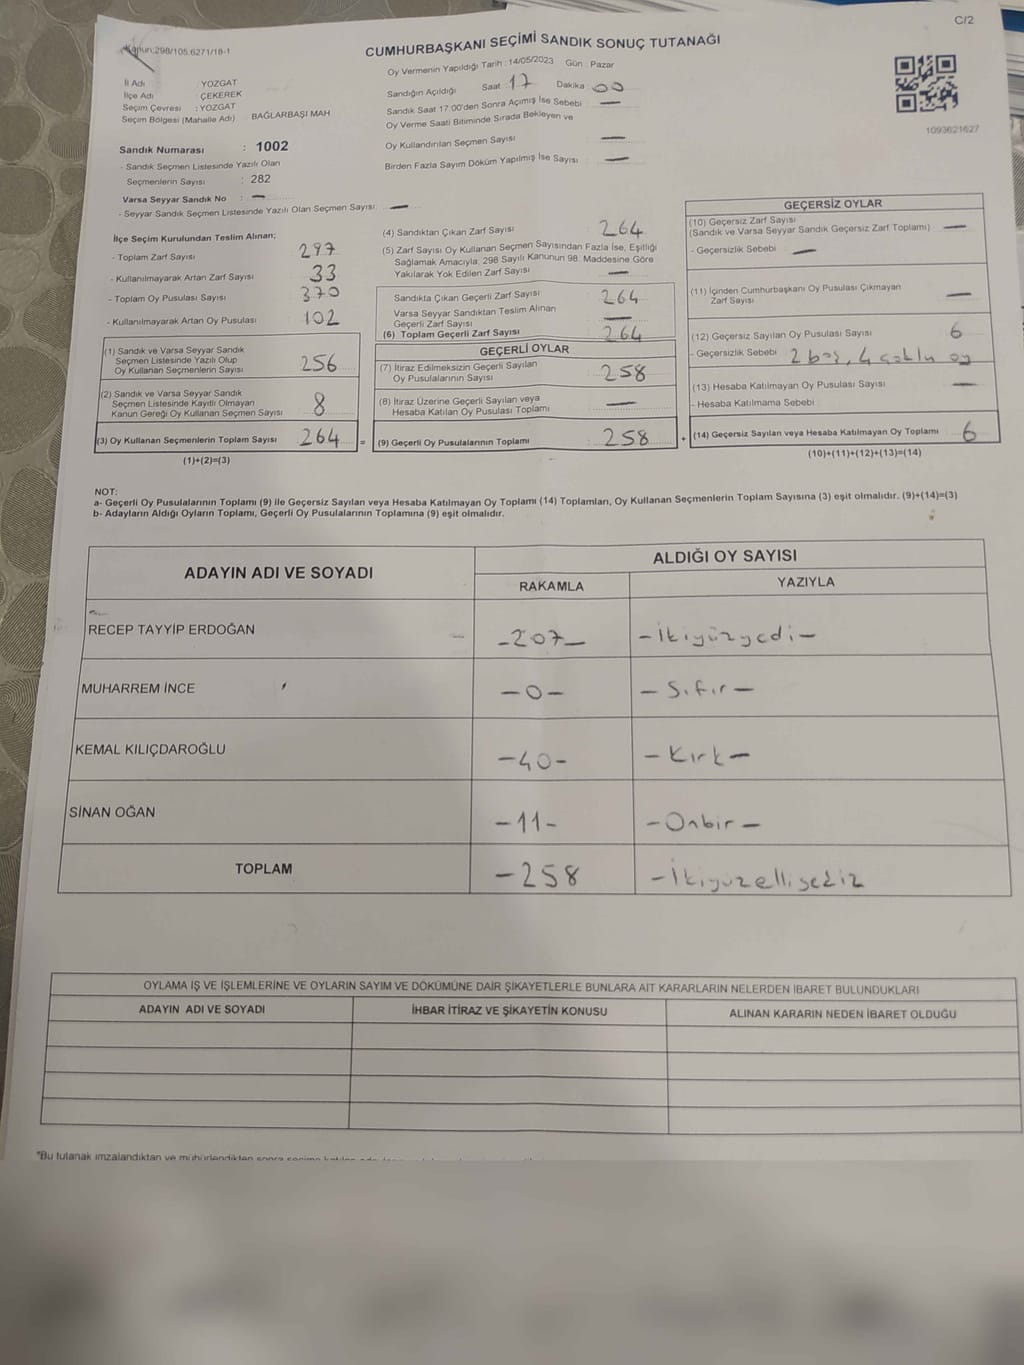 C/2
Kanun:298/105,6271/18-1
CUMHURBAŞKANI SEÇİMİ SANDIK SONUÇ TUTANAĞI
İl Adı : YOZGAT
İlçe Adı : ÇEKEREK
Seçim Çevresi : YOZGAT
Seçim Bölgesi (Mahalle Adı) : BAĞLARBAŞI MAH
Sandık Numarası : 1002
- Sandık Seçmen Listesinde Yazılı Olan
Seçmenlerin Sayısı : 282
Varsa Seyyar Sandık No : —
- Seyyar Sandık Seçmen Listesinde Yazılı Olan Seçmen Sayısı: —
Oy Vermenin Yapıldığı Tarih : 14/05/2023 Gün : Pazar
Sandığın Açıldığı Saat 17 Dakika 00
Sandık Saat 17:00'den Sonra Açılmış İse Sebebi —
Oy Verme Saati Bitiminde Sırada Bekleyen ve
Oy Kullandırılan Seçmen Sayısı —
Birden Fazla Sayım Döküm Yapılmış İse Sayısı —
1093621627
İlçe Seçim Kurulundan Teslim Alınan;
- Toplam Zarf Sayısı 297
- Kullanılmayarak Artan Zarf Sayısı 33
- Toplam Oy Pusulası Sayısı 370
- Kullanılmayarak Artan Oy Pusulası 102
(1) Sandık ve Varsa Seyyar Sandık
Seçmen Listesinde Yazılı Olup
Oy Kullanan Seçmenlerin Sayısı 256
(2) Sandık ve Varsa Seyyar Sandık
Seçmen Listesinde Kayıtlı Olmayan
Kanun Gereği Oy Kullanan Seçmen Sayısı 8
(3) Oy Kullanan Seçmenlerin Toplam Sayısı 264 =
(1)+(2)=(3)
(4) Sandıktan Çıkan Zarf Sayısı 264
(5) Zarf Sayısı Oy Kullanan Seçmen Sayısından Fazla İse, Eşitliği
Sağlamak Amacıyla; 298 Sayılı Kanunun 98. Maddesine Göre
Yakılarak Yok Edilen Zarf Sayısı —
Sandıkta Çıkan Geçerli Zarf Sayısı 264
Varsa Seyyar Sandıktan Teslim Alınan
Geçerli Zarf Sayısı —
(6) Toplam Geçerli Zarf Sayısı 264
GEÇERLİ OYLAR
(7) İtiraz Edilmeksizin Geçerli Sayılan
Oy Pusulalarının Sayısı : 258
(8) İtiraz Üzerine Geçerli Sayılan veya
Hesaba Katılan Oy Pusulası Toplamı : —
(9) Geçerli Oy Pusulalarının Toplamı : 258 +
GEÇERSİZ OYLAR
(10) Geçersiz Zarf Sayısı
(Sandık ve Varsa Seyyar Sandık Geçersiz Zarf Toplamı) —
- Geçersizlik Sebebi —
(11) İçinden Cumhurbaşkanı Oy Pusulası Çıkmayan
Zarf Sayısı —
(12) Geçersiz Sayılan Oy Pusulası Sayısı 6
- Geçersizlik Sebebi 2 boş, 4 çoklu oy
(13) Hesaba Katılmayan Oy Pusulası Sayısı —
- Hesaba Katılmama Sebebi
(14) Geçersiz Sayılan veya Hesaba Katılmayan Oy Toplamı 6
(10)+(11)+(12)+(13)=(14)
NOT:
a- Geçerli Oy Pusulalarının Toplamı (9) ile Geçersiz Sayılan veya Hesaba Katılmayan Oy Toplamı (14) Toplamları, Oy Kullanan Seçmenlerin Toplam Sayısına (3) eşit olmalıdır. (9)+(14)=(3)
b- Adayların Aldığı Oyların Toplamı, Geçerli Oy Pusulalarının Toplamına (9) eşit olmalıdır.
ADAYIN ADI VE SOYADI
ALDIĞI OY SAYISI
RAKAMLA YAZIYLA
RECEP TAYYİP ERDOĞAN -207- -İkiyüzyedi-
MUHARREM İNCE -0- -Sıfır-
KEMAL KILIÇDAROĞLU -40- -Kırk-
SİNAN OĞAN -11- -Onbir-
TOPLAM -258 -İkiyüzellisekiz
OYLAMA İŞ VE İŞLEMLERİNE VE OYLARIN SAYIM VE DÖKÜMÜNE DAİR ŞİKAYETLERLE BUNLARA AİT KARARLARIN NELERDEN İBARET BULUNDUKLARI
ADAYIN ADI VE SOYADI İHBAR İTİRAZ VE ŞİKAYETİN KONUSU ALINAN KARARIN NEDEN İBARET OLDUĞU
*Bu tutanak imzalandıktan ve mühürlendikten sonra